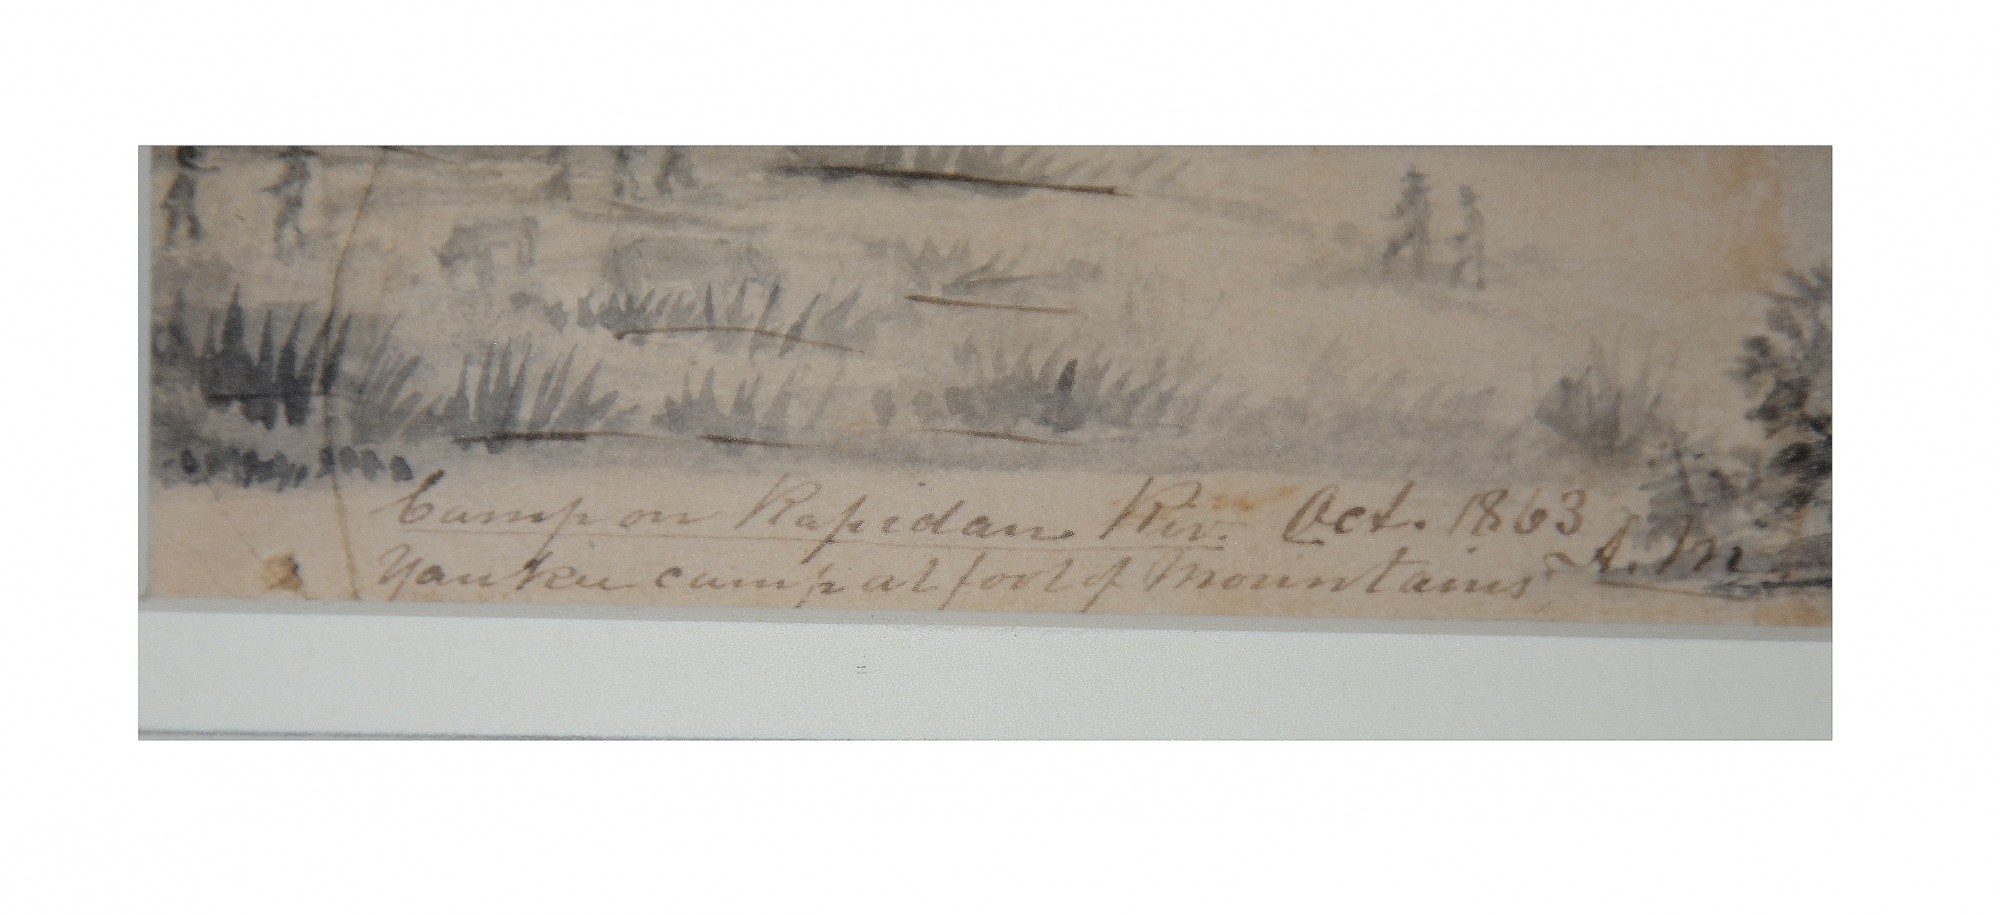 Camp on Rapidan Riv. Oct. 1863
Yankee camp at foot of Mountains A. M.